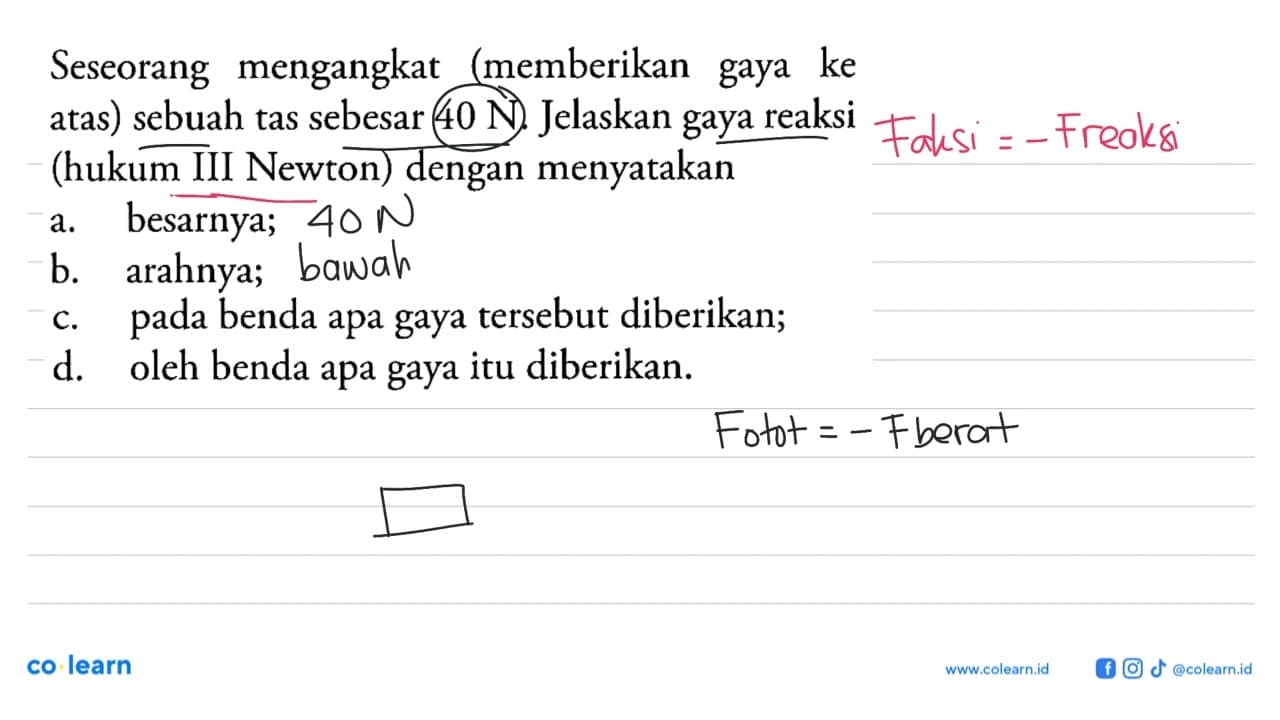 Seseorang mengangkat (memberikan gaya ke
atas) sebuah tas sebesar 40 N. Jelaskan gaya reaksi
(hukum III Newton) dengan menyatakan
Faksi = - Freaksi
a. besarnya; 40 N
b. arahnya; bawah
c. pada benda apa gaya tersebut diberikan;
d. oleh benda apa gaya itu diberikan.
Fotot = - Fberat
co learn
www.colearn.id @colearn.id